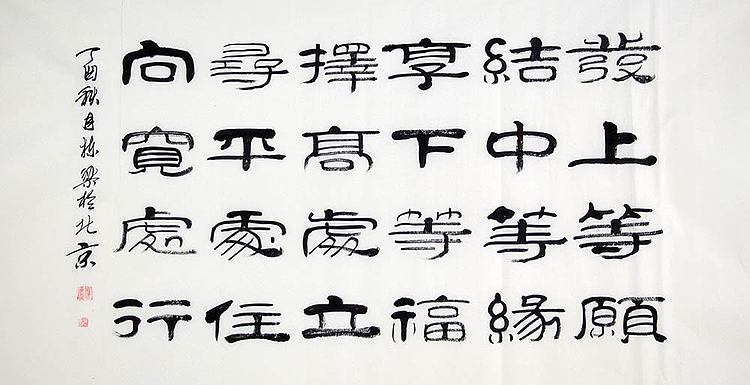 發上等願
結中等緣
享下等福
擇高處立
尋平處住
向寬處行
丁酉秋月栋梁於北京